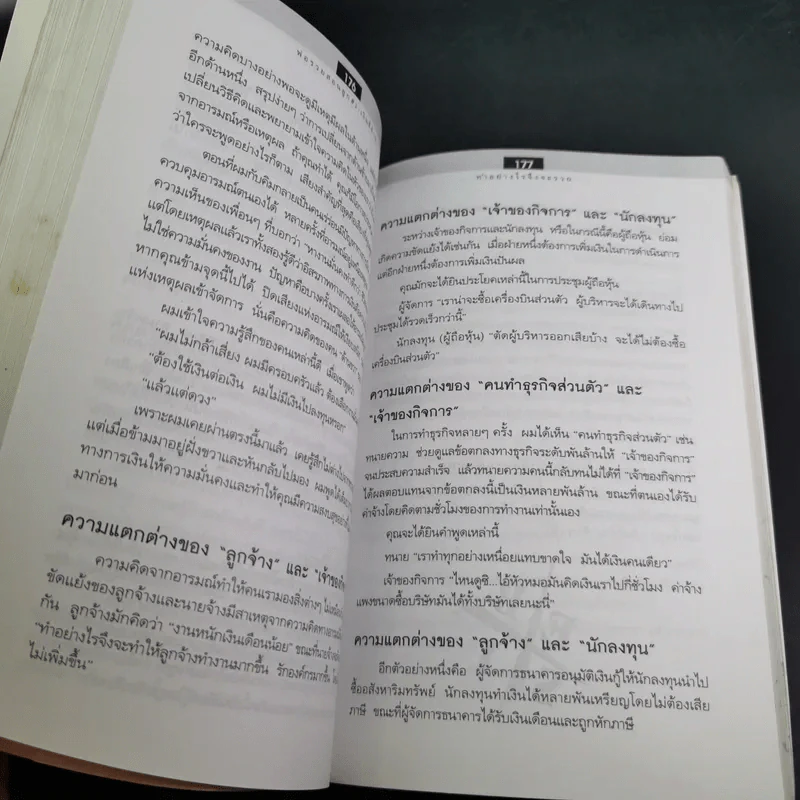 176
ความคิดบางอย่างพอจะดูมีเหตุมีผลในด้านหนึ่ง
อีกด้านหนึ่ง สรุปง่ายๆ ว่าการเปลี่ยนจากด้าน
เปลี่ยนวิธีคิดและพยายามเข้าใจความคิดใน
จากอารมณ์หรือเหตุผล ถ้าคุณทำได้
ว่าใครจะพูดอย่างไรก็ตาม เสียงสำคัญที่สุดคือเสียง
ตอนที่ผมกับคิมกลายเป็นคนเร่ร่อน
ควบคุมอารมณ์ตนเองได้ หลายครั้งที่อารมณ์
ความเห็นของเพื่อนๆ ที่บอกว่า "หางานมั่นคงทำ
แต่โดยเหตุผลแล้วเราทั้งสองรู้ดีว่าอิสรภาพทางการเงิน
ไม่ใช่ความมั่นคงของงาน ปัญหาคือบางครั้ง
หากคุณข้ามจุดนี้ไปได้ ปิดเสียงแห่งอารมณ์ได้
แห่งเหตุผลเข้าจัดการ นั่นคือความคิดของคน
ผมเข้าใจความรู้สึกของคนเหล่านี้ดี เมื่อเขาพูดว่า
"ผมไม่กล้าเสี่ยง ผมมีครอบครัวแล้ว ต้อง
"ต้องใช้เงินต่อเงิน ผมไม่มีเงินไปลงทุนหรอก"
"แล้วแต่ดวง"
เพราะผมเคยผ่านตรงนี้มาแล้ว เคยรู้สึกไม่ต่าง
แต่เมื่อข้ามมาอยู่ฝั่งขวาและหันกลับไปมอง ผมพูดได้
ทางการเงินให้ความมั่นคงและทำให้คุณมีความสงบสุข
มาก่อน
ความแตกต่างของ "ลูกจ้าง" และ "เจ้าของ
ความคิดจากอารมณ์ทำให้คนเรามองสิ่งต่างๆ ไม่
ขัดแย้งของลูกจ้างและนายจ้างมีสาเหตุจากความคิดทางอารมณ์
กัน ลูกจ้างมักคิดว่า "งานหนักเงินเดือนน้อย" ขณะที่นายจ้าง
"ทำอย่างไรจึงจะทำให้ลูกจ้างทำงานมากขึ้น รักองค์กรมากขึ้น
ไม่เพิ่มขึ้น"
177
ทำอย่างไรจึงจะรวย
ความแตกต่างของ "เจ้าของกิจการ" และ "นักลงทุน"
ระหว่างเจ้าของกิจการและนักลงทุน หรือในกรณีนี้คือผู้ถือหุ้น ย่อม
เกิดความขัดแย้งได้เช่นกัน เมื่อฝ่ายหนึ่งต้องการเพิ่มเงินในการดำเนินการ
แต่อีกฝ่ายหนึ่งต้องการเพิ่มเงินปันผล
คุณมักจะได้ยินประโยคเหล่านี้ในการประชุมผู้ถือหุ้น
ผู้จัดการ "เราน่าจะซื้อเครื่องบินส่วนตัว ผู้บริหารจะได้เดินทางไป
ประชุมได้รวดเร็วกว่านี้"
นักลงทุน (ผู้ถือหุ้น) "ตัดผู้บริหารออกเสียบ้าง จะได้ไม่ต้องซื้อ
เครื่องบินส่วนตัว"
ความแตกต่างของ "คนทำธุรกิจส่วนตัว" และ
"เจ้าของกิจการ"
ในการทำธุรกิจหลายๆ ครั้ง ผมได้เห็น "คนทำธุรกิจส่วนตัว" เช่น
ทนายความ ช่วยดูแลข้อตกลงทางธุรกิจระดับพันล้านให้ "เจ้าของกิจการ"
จนประสบความสำเร็จ แล้วทนายความคนนี้กลับทนไม่ได้ที่ "เจ้าของกิจการ"
ได้ผลตอบแทนจากข้อตกลงนี้เป็นเงินหลายพันล้าน ขณะที่ตนเองได้รับ
ค่าจ้างโดยคิดตามชั่วโมงของการทำงานเท่านั้นเอง
คุณจะได้ยินคำพูดเหล่านี้
ทนาย "เราทำทุกอย่างเหนื่อยแทบขาดใจ มันได้เงินคนเดียว"
เจ้าของกิจการ "ไหนดูซิ...ไอ้หัวหมอมันคิดเงินเราไปกี่ชั่วโมง ค่าจ้าง
แพงขนาดซื้อบริษัทมันได้ทั้งบริษัทเลยนะนี่"
ความแตกต่างของ "ลูกจ้าง" และ "นักลงทุน"
อีกตัวอย่างหนึ่งคือ ผู้จัดการธนาคารอนุมัติเงินกู้ให้นักลงทุนนำไป
ซื้ออสังหาริมทรัพย์ นักลงทุนทำเงินได้หลายพันเหรียญโดยไม่ต้องเสีย
ภาษี ขณะที่ผู้จัดการธนาคารได้รับเงินเดือนและถูกหักภาษี